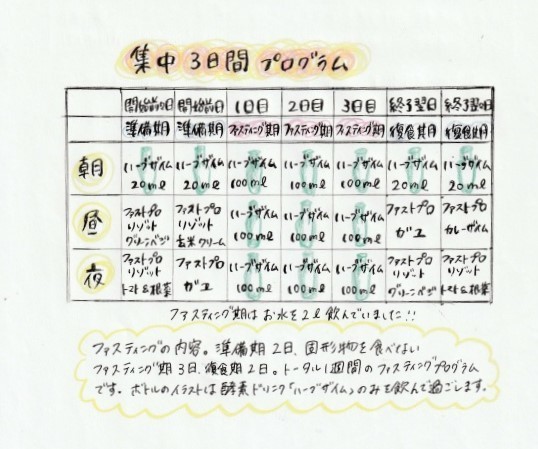 集中 3日間 プログラム
開始前日 開始前日 1日目 2日目 3日目 終了翌日 終了翌日
準備期 準備期 ファスティング期 ファスティング期 ファスティング期 復食期 復食期
朝 ハーブザイム 20ml ハーブザイム 20ml ハーブザイム 100ml ハーブザイム 100ml ハーブザイム 100ml ハーブザイム 20ml ハーブザイム 20ml
昼 ファストプロ リゾット グリーンベジ ファストプロ リゾット 玄米クリーム ハーブザイム 100ml ハーブザイム 100ml ハーブザイム 100ml ファストプロ ガユ ファストプロ カレーザイム
夜 ファストプロ リゾット トマト&根菜 ファストプロ ガユ ハーブザイム 100ml ハーブザイム 100ml ハーブザイム 100ml ファストプロ リゾット グリーンベジ ファストプロ リゾット トマト&根菜
ファスティング期はお水を2l飲んでいました!!
ファスティングの内容。準備期2日、固形物を食べない
ファスティング期3日、復食期2日。トータル1週間のファスティングプログラム
です。ボトルのイラストは酵素ドリンク「ハーブザイム」のみを飲んで過ごします。